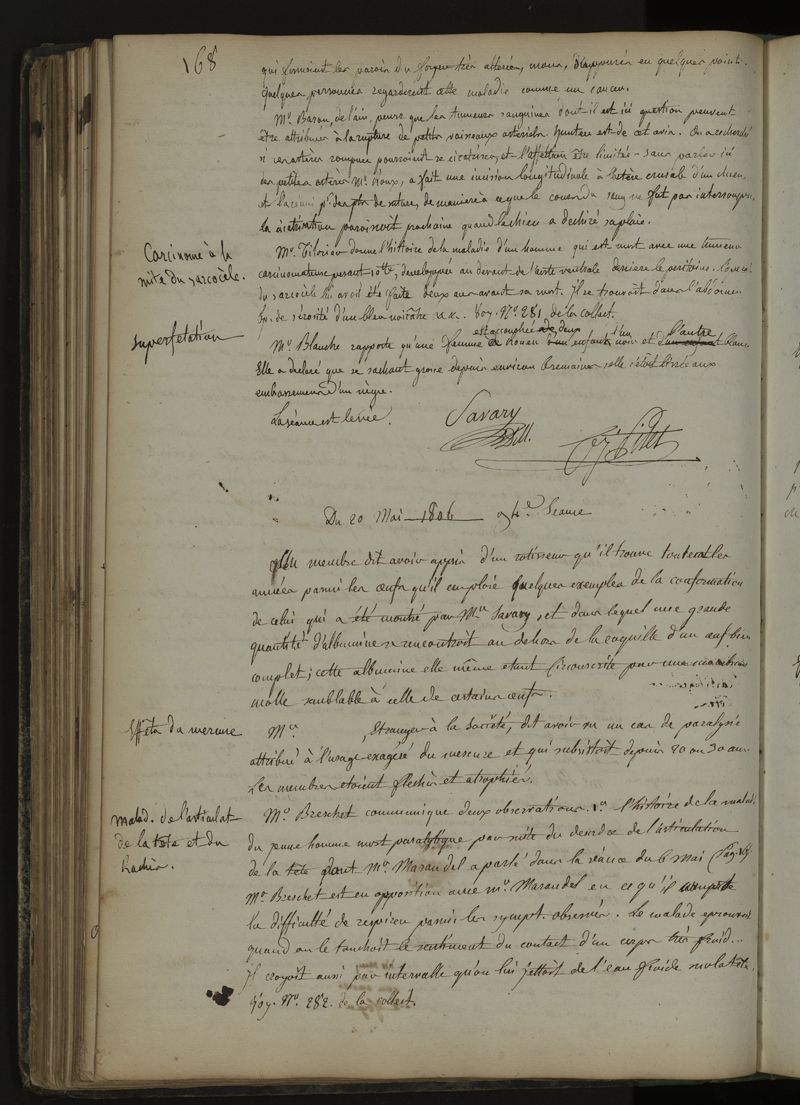 168
qui formoient les parois du foyer très alterées, mous, disapprurée en quelques points.
Quelques personnes regarderent cette maladie comme un cancer.
Mr. Baron, de l'ain, pense que les tumeurs sanguines dont il est ici question peuvent
être attribuées à la rupture de petits vaisseaux artériels. hunter est de cet avis. On a recherché
si ces artères rompues pouvoient se cicatriser, et l'affection être limitée - sans parler ici
des petites artères Mr. a fait une incision longitudinale à l'artère crurale d'un chien,
et l'a réuni pr. des pts. de suture, de manière à ce que le cours du sang ne fut pas interrompu,
la cicatrisation paroissoit prochaine quand le chien a déchiré sa plaie.
Carcinome à la
suite du sarcocèle.
Mr. donne l'histoire de la maladie d'un homme qui est mort avec une tumeur
carcinomateuse pesant 10 tt, developpée au devant de l'aorte ventrale derriere le péritoine. L'
du sarcocèle lui avoit été faite deux ans avant sa mort. Il se trouvoit dans l'abdomen
de sérosité d'un bleu noirâtre &&. Voy. No. 281 de la collect.
superfetation
est accouchée de deux l'un l'autre
Mr. Blanche rapporte qu'une femme de Rouen enfants noir et d'un enfant blanc
Elle a declaré que se sachant grosse depuis environ semaines, elle s'étoit livrée aux
embrassemens d'un nègre.
La séance est levée.
Savary
Du 20 Mai 1806 Séance
Un membre dit avoir appris d'un rotisseur qu'il trouve toutes les
années parmi les œufs qu'il emploie quelques exemples de la conformation
de celui qui a été montré par Mr. Savary, et dans lequel une grande
quantité d'albumine se rencontroit au dehors de la coquille d'un œuf bien
complet; cette albumine elle même etant circonscrite par une membrane
molle semblable à celle de certains œufs.
Effets du mercure
Mr. Etranger à la Société, dit avoir vu un cas de paralysie
attribué à l'usage exagéré du mercure et qui subsistoit depuis 20 ou 30 ans.
Les membres etoient flechis et atrophiés.
malad. de l'articulat.
de la tête et du
rachis.
Mr. Breschet communique deux observations. 1o. l'histoire de la malad.
du jeune homme mort paralytique par suite du desordre de l'articulation
de la tête dont Mr. Marandel a parlé dans la séance du 6 mai (
Mr. Breschet est en opposition avec Mr. Marandel en ce qu'il compte
la difficulté de respirer parmi les sympt. observés. Le malade eprouvoit
quand on le touchoit le sentiment du contact d'un corps très froid...
Il croyoit aussi par intervalle qu'on lui jettoit de l'eau froide sur la tête.
Voy. No. 282. de la collect.